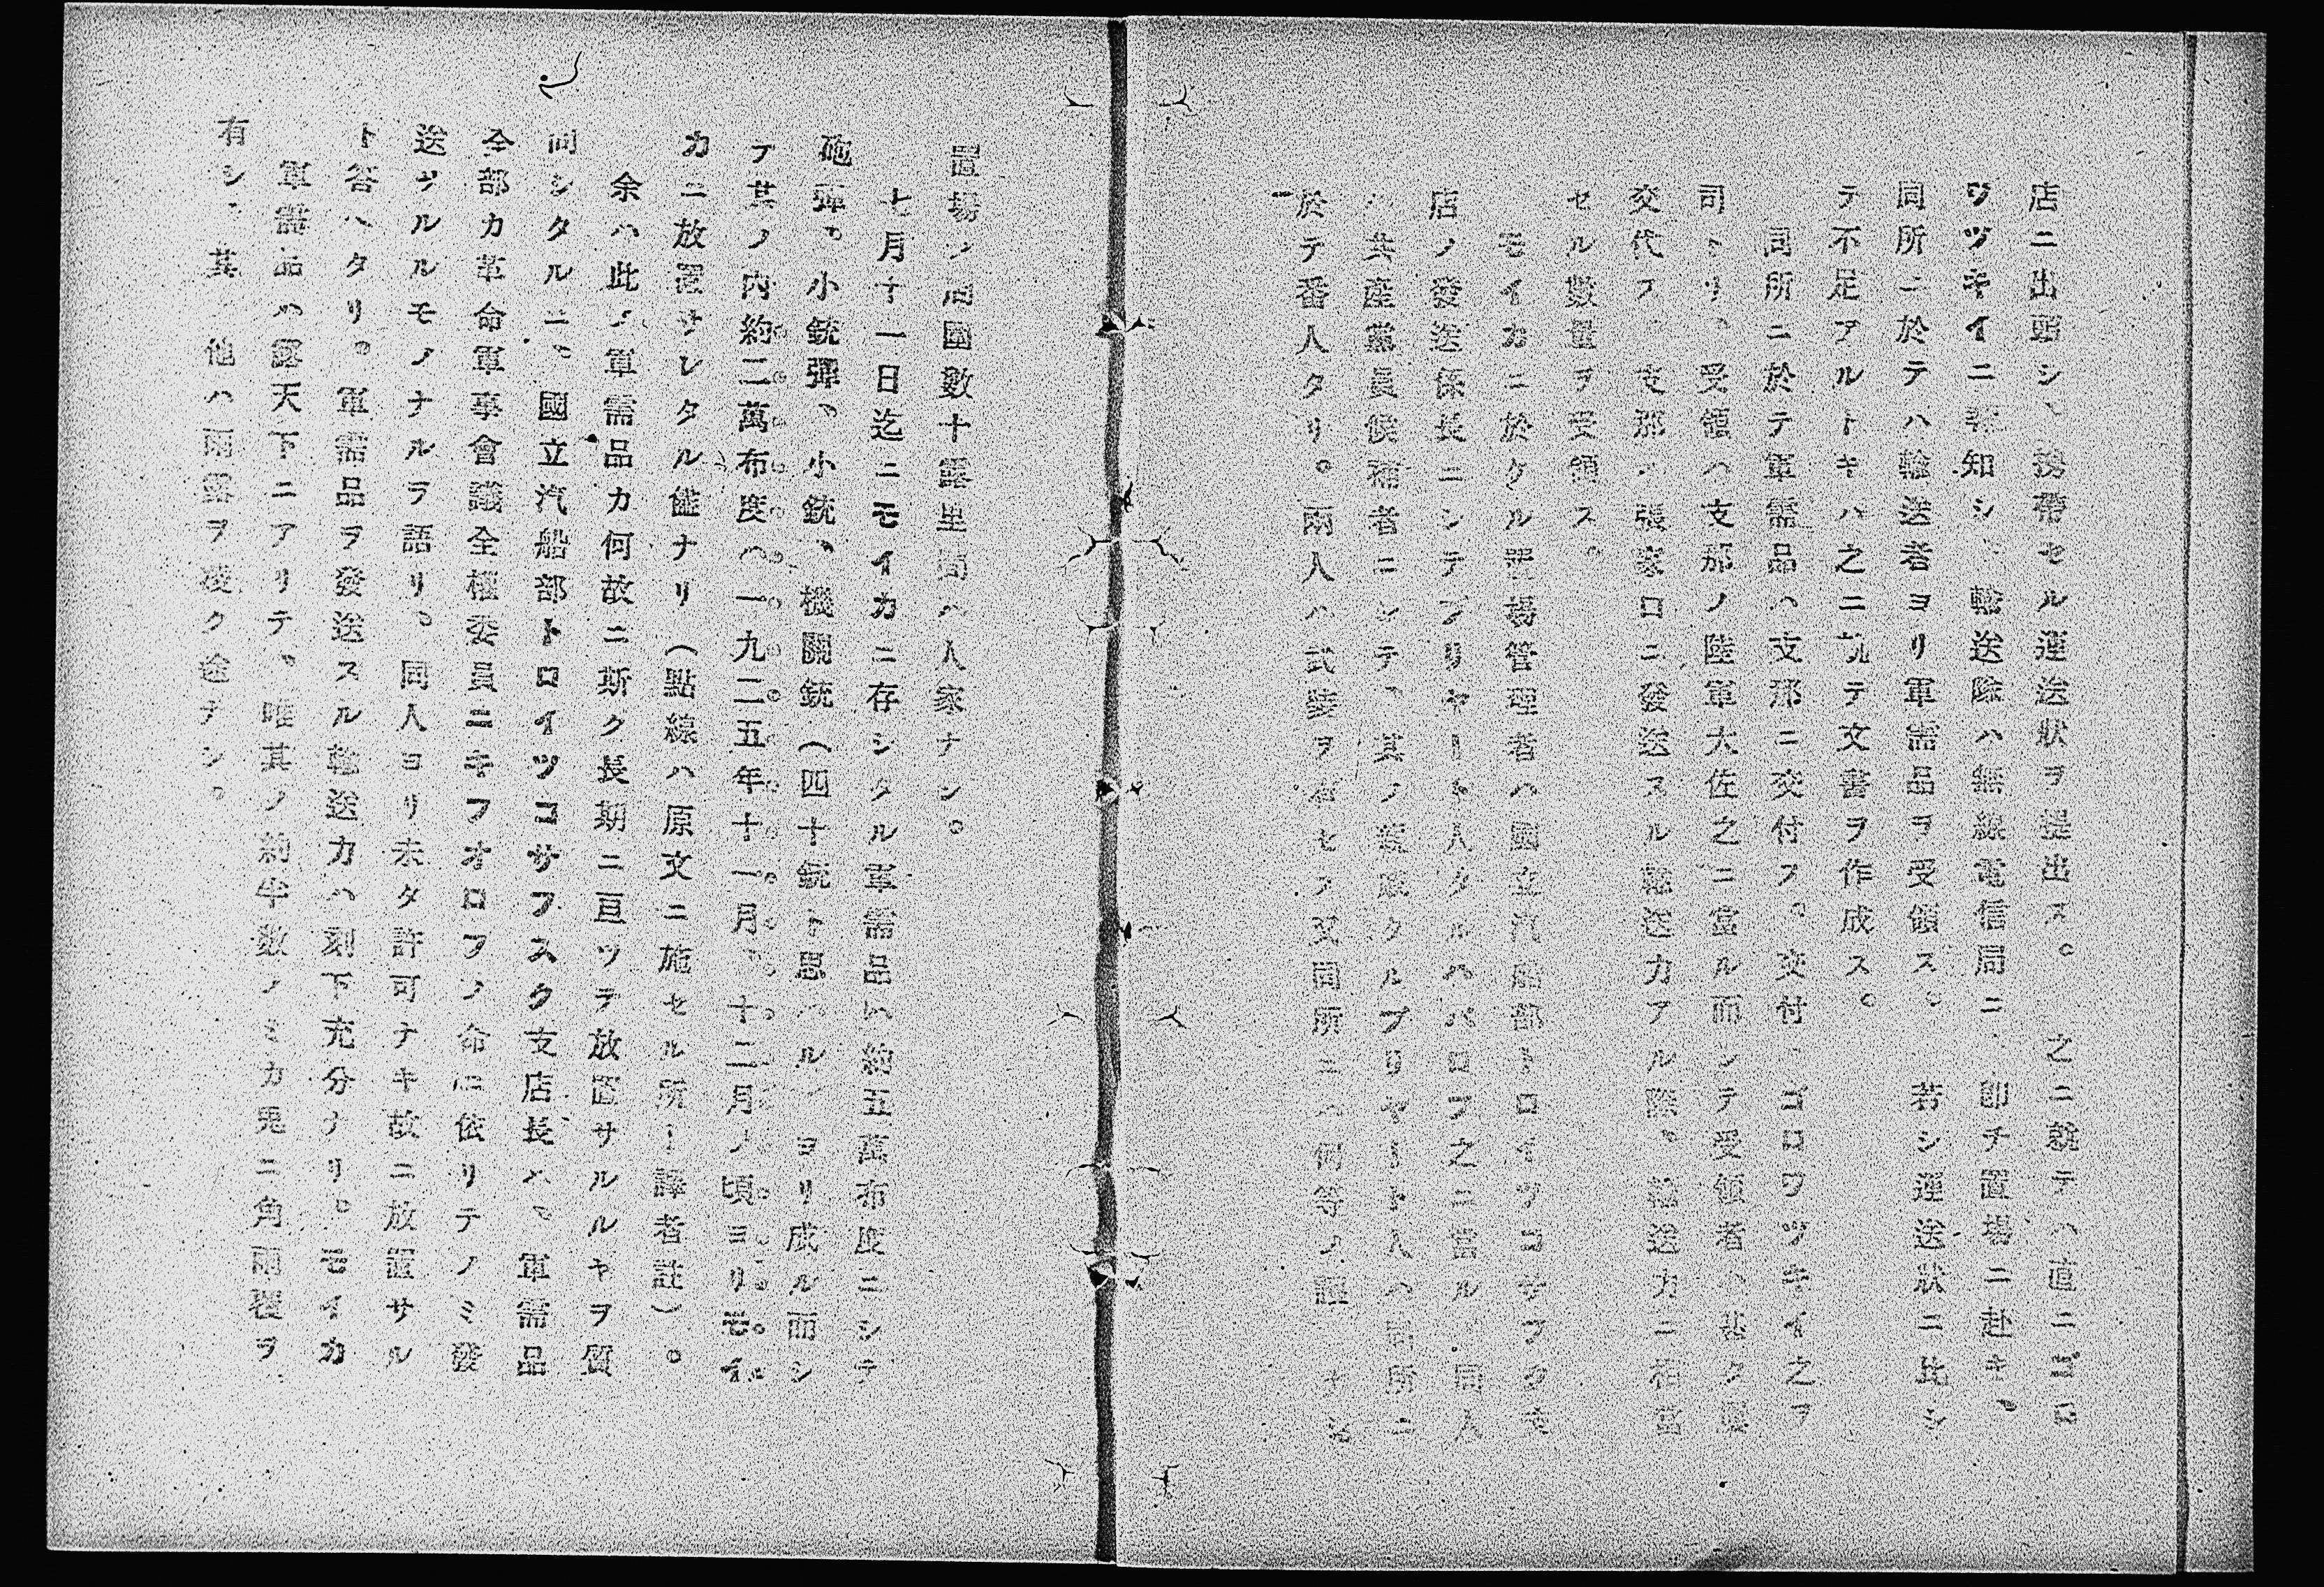 店ニ出頭シ、携帶セル運送狀ヲ提出ス。之ニ就テハ直ニゴロ
ワツキイニ報知シ、輸送隊ハ無線電信局ニ、卽チ置場ニ赴キ、
同所ニ於テハ輸送者ヨリ軍需品ヲ受領ス。若シ運送狀ニ比シ
テ不足アルトキハ之ニ就テ文書ヲ作成ス。
同所ニ於テ軍需品ハ支那ニ交付ス。交付ハゴロワツキイ之ヲ
司トリ、受領ハ支那ノ陸軍大佐之ニ當ル而シテ受領者ハ甚ク屢
交代ス。支那ハ張家口ニ發送スル輸送力アル際、輸送力ニ相當
セル數量ヲ受領ス。
モイカニ於ケル置場管理者ハ國立汽船部トロイツコサフクク支
店ノ發送係長ニシテブリヤート人タルハバロフ之ニ當ル、同人
ハ共産黨員候補者ニシテ、其ノ
ブリヤート人ハ同所ニ
於テ番人タリ。兩人ハ武裝ヲ有セス又同所ニハ何等ノ
ナシ
置場ノ周圍數十露里間ハ人家ナシ。
七月十一日迄ニモイカニ存シタル軍需品ハ約五萬布度ニシテ
砲彈、小銃彈、小銃、機關銃（四十銃ト思ハル）ヨリ成ル而シ
テ其ノ内約二萬布度ハ一九二五年十一月、十二月ノ頃ヨリモイ
カニ放置サレタル儘ナリ（點線ハ原文ニ施セル所ー譯者註）。
余ハ此ノ軍需品カ何故ニ斯ク長期ニ亘ツテ放置サルルヤヲ質
問シタルニ、國立汽船部トロイツコサフスク支店長ハ、軍需品
全部カ革命軍事會議全權委員ニキフオロフノ命ニ依リテノミ發
送サルルモノナルヲ語リ、同人ヨリ未タ許可ナキ故ニ放置サル
ト答ヘタリ。軍需品ヲ發送スル輸送力ハ刻下充分ナリ。モイカ
軍需品ハ露天下ニアリテ、唯其ノ約半數ノミカ兎ニ角雨覆ヲ
有シ、其ノ他ハ雨露ヲ凌ク途ナシ。